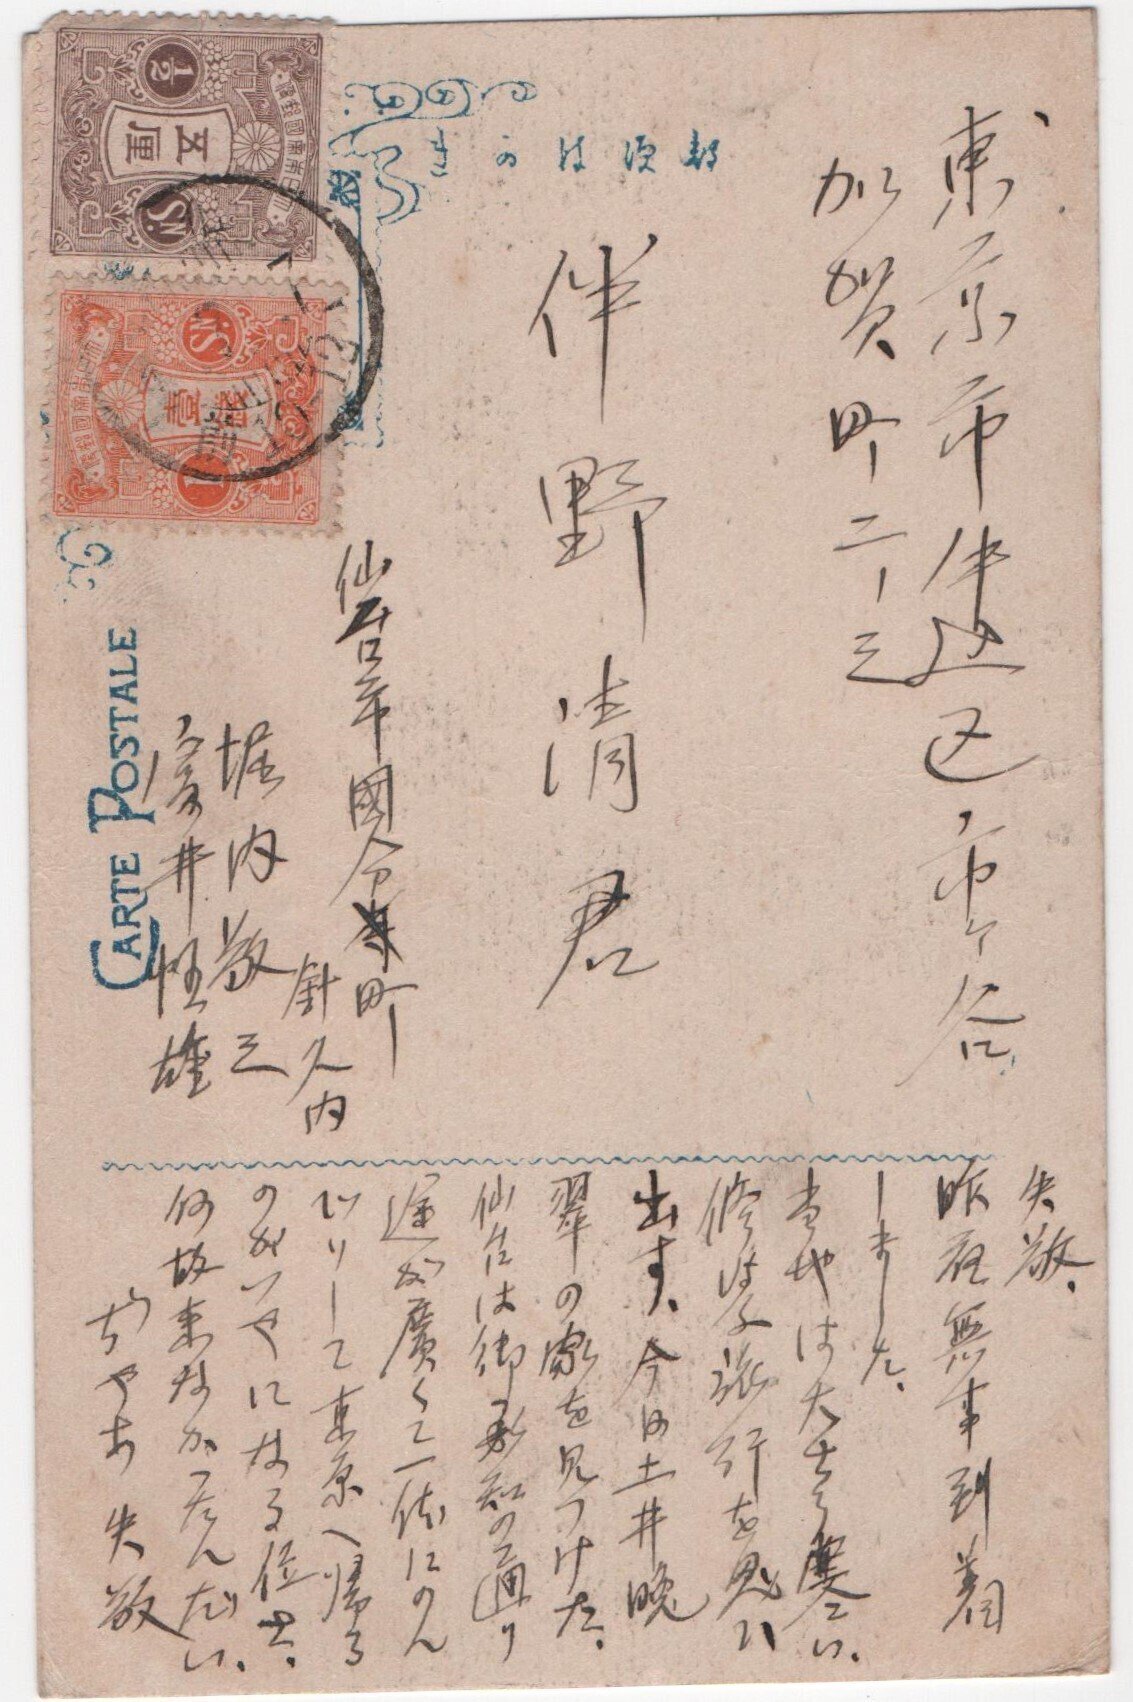 東京市牛込区市ヶ谷
加賀町二ノ三
伴野清君
仙台市國分町
針久内
堀内敬三
五厘
壹銭
CARTE POSTALE
失敬、
昨夜無事到着
しました、
当地は大さう寒い、
修学旅行を思ひ
出す、今日土井晩
翠の家を見つけた、
仙台は御承知の通り
道が廣くて一体にのん
びりして東京へ帰る
のがいやになる位だ、
何故来なかったんだい、
ぢやあ 失敬